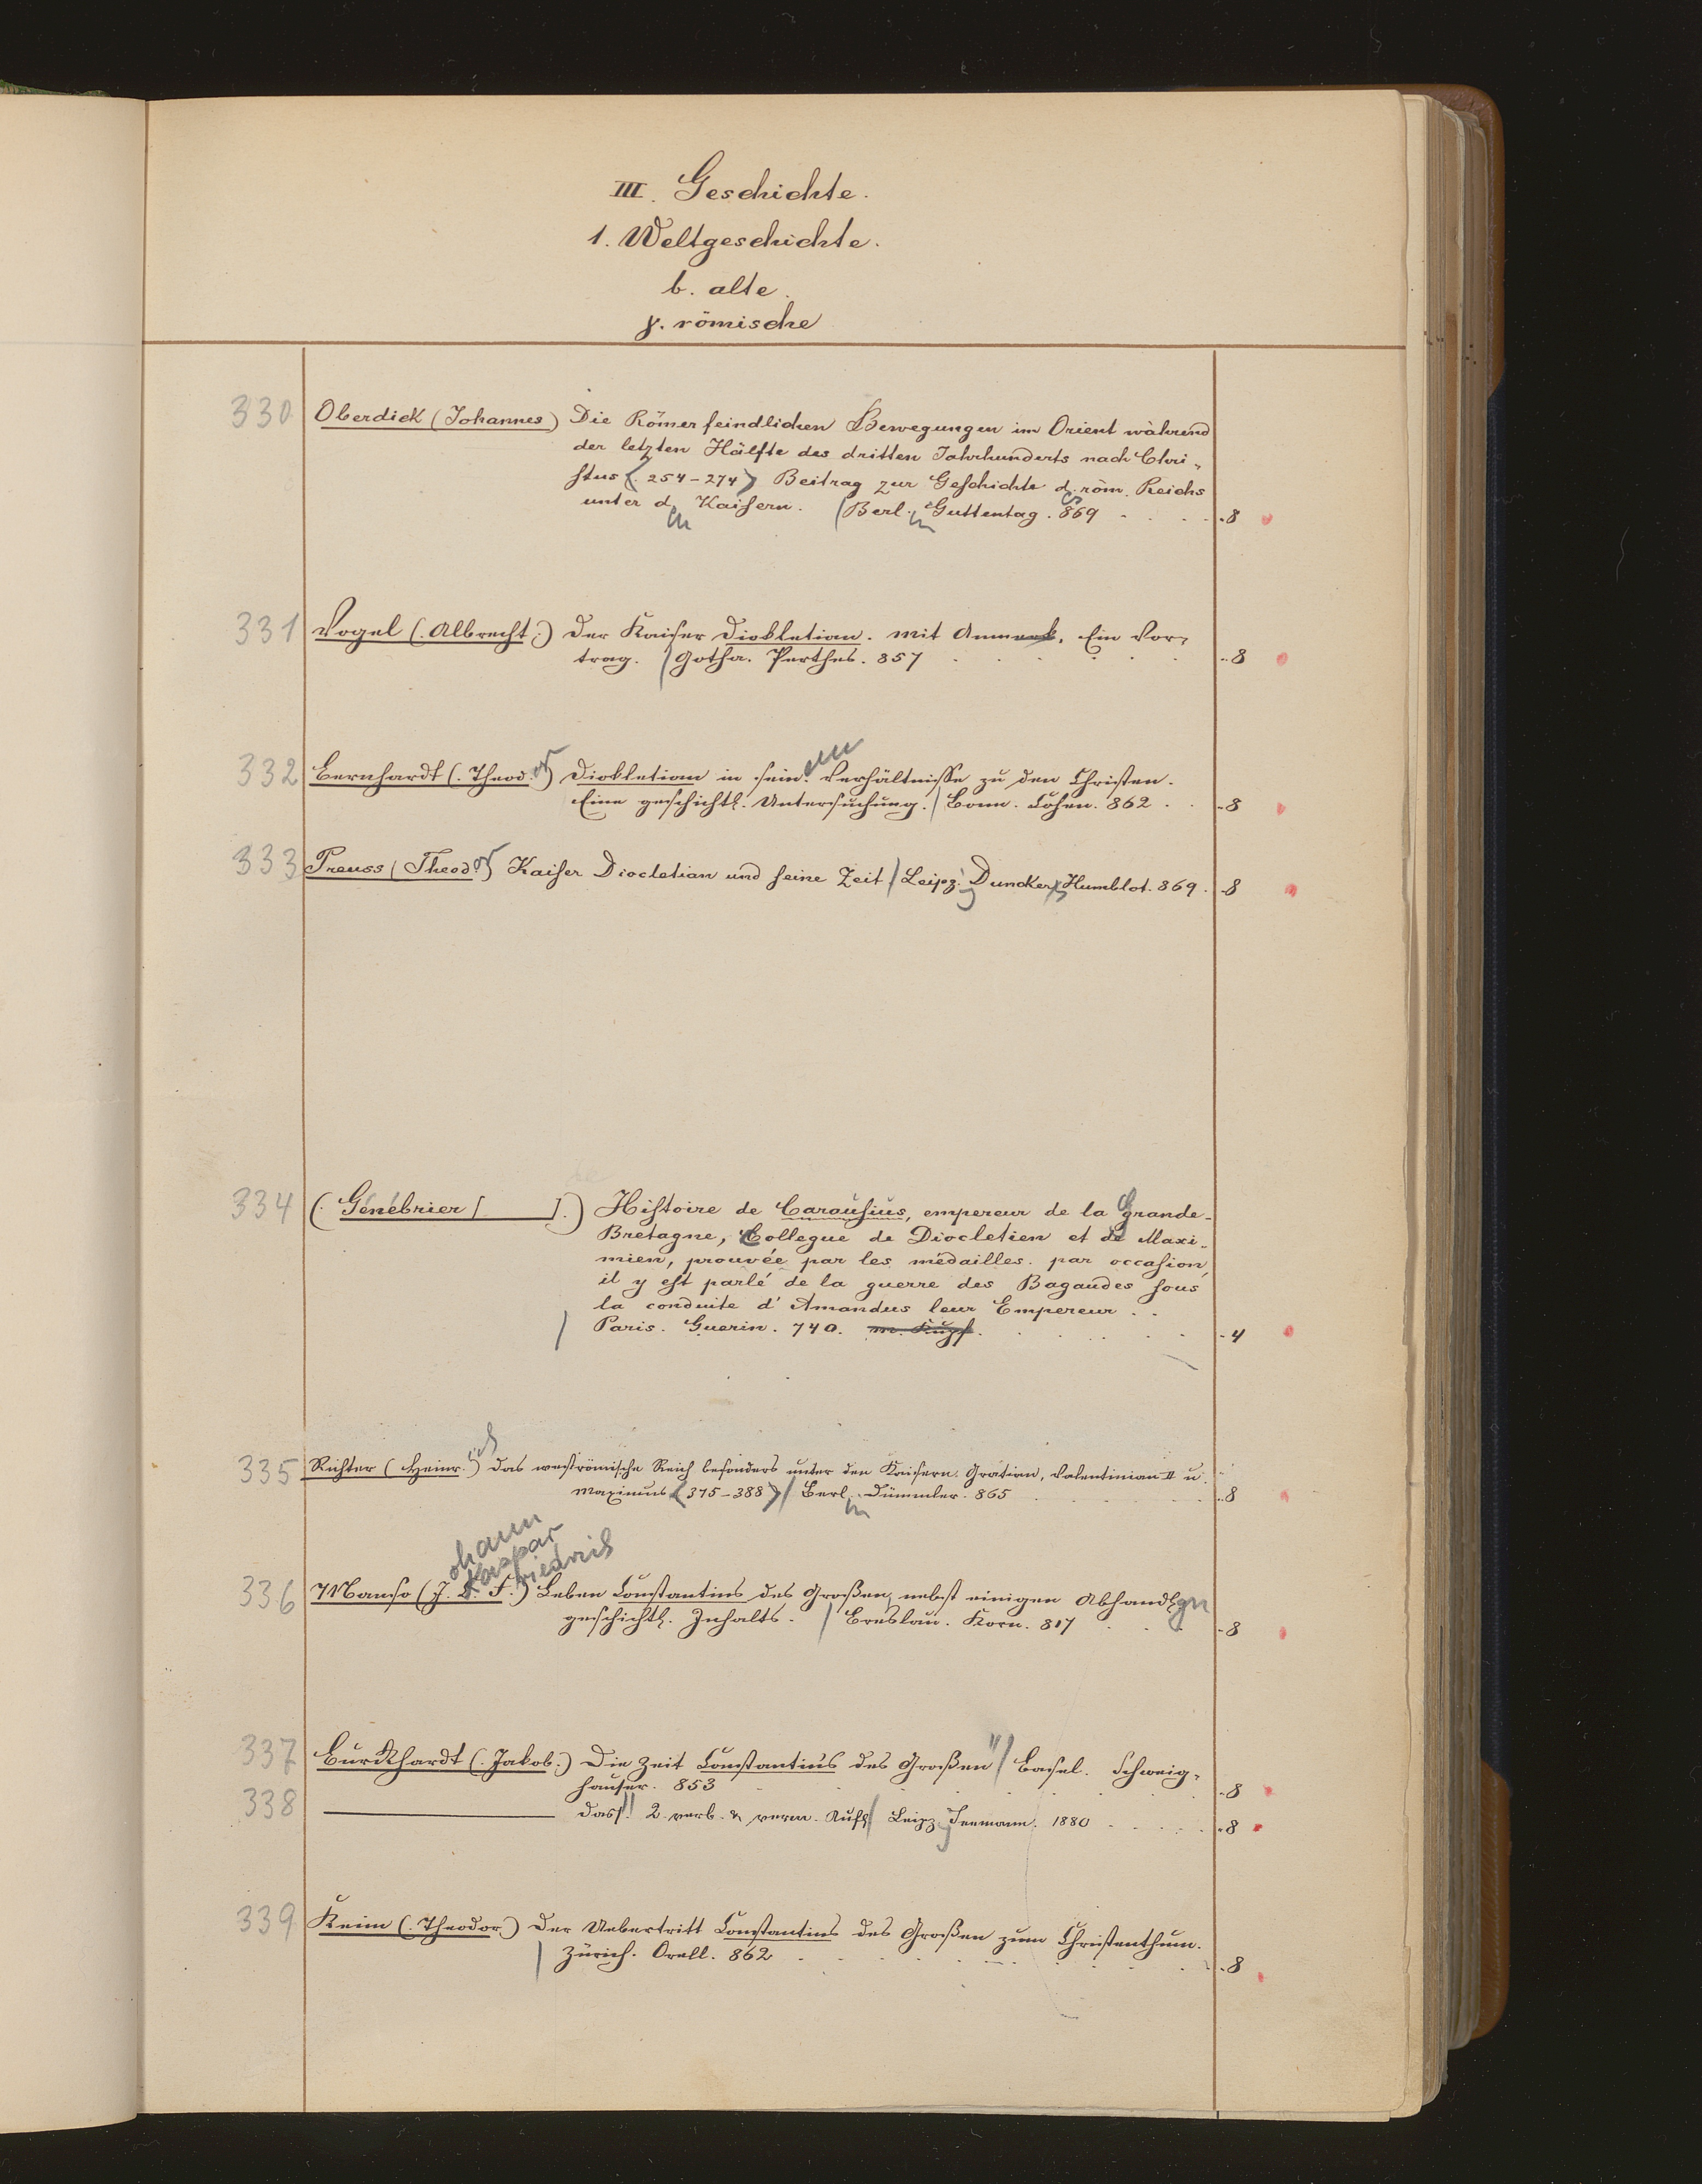 III. Geschichte.
1. Weltgeschichte.
b. alte.
γ. römische
330 Oberdick (Johannes) Die Römerfeindlichen Bewegungen im Orient während
der letzten Hälfte des dritten Jahrhunderts nach Chri-
stus <254-274> Beitrag zur Geschichte d. röm. Reichs
unter den Kaisern. / Berlin Guttentag. 869 . . . . 8
331 Vogel (. Albrecht.) Der Kaiser Diokletian. Mit Anmerk. Ein Vor-
trag. / Gotha. Perthes. 857 . . . . . 8
332 Bernhardt (. Theodor) Diokletian in seinem Verhältnisse zu den Christen.
Eine geschichtl. Untersuchung. / Bonn. Cohen. 862 . . 8
333 Preuss (Theodor) Kaiser Diocletian und seine Zeit / Leipzg Duncker & Humblot. 869. 8
334 (. Génébrier [ ].) Histoire de Carausius, empereur de la Grande-
Bretagne, Collegue de Diocletien et de Maxi-
mien, prouvée par les médailles. par occasion,
il y est parlé de la guerre des Bagaudes sous
la conduite d'Amandus leur Empereur . .
/ Paris. Guerin. 740. m. Kupf. . . . . 4
335 Richter (Heinrich) Das weströmische Reich besonders unter den Kaisern Gratian, Valentinian II u.
Maximus <375-388> / Berlin Dümmler. 865 . . . . 8
ohann
Kaspar
riedrich
336 Manso (J. C. F.) Leben Constantins des Großen, nebst einigen Abhandlgn
geschichtl. Inhalts. / Breslau. Korn. 817 . . . 8
337 Burckhardt (. Jakob.) Die Zeit Constantins des Großen / Basel. Schweig-
hauser. 853 . . . . . 8
338 ——— Dass. 2. verb. & verm. Aufl / Leipzg Seemann. 1880 . . . . 8
339 Keim (. Theodor.) Der Uebertritt Constantins des Großen zum Christenthum.
/ Zürich. Orell. 862 . . . . . 8